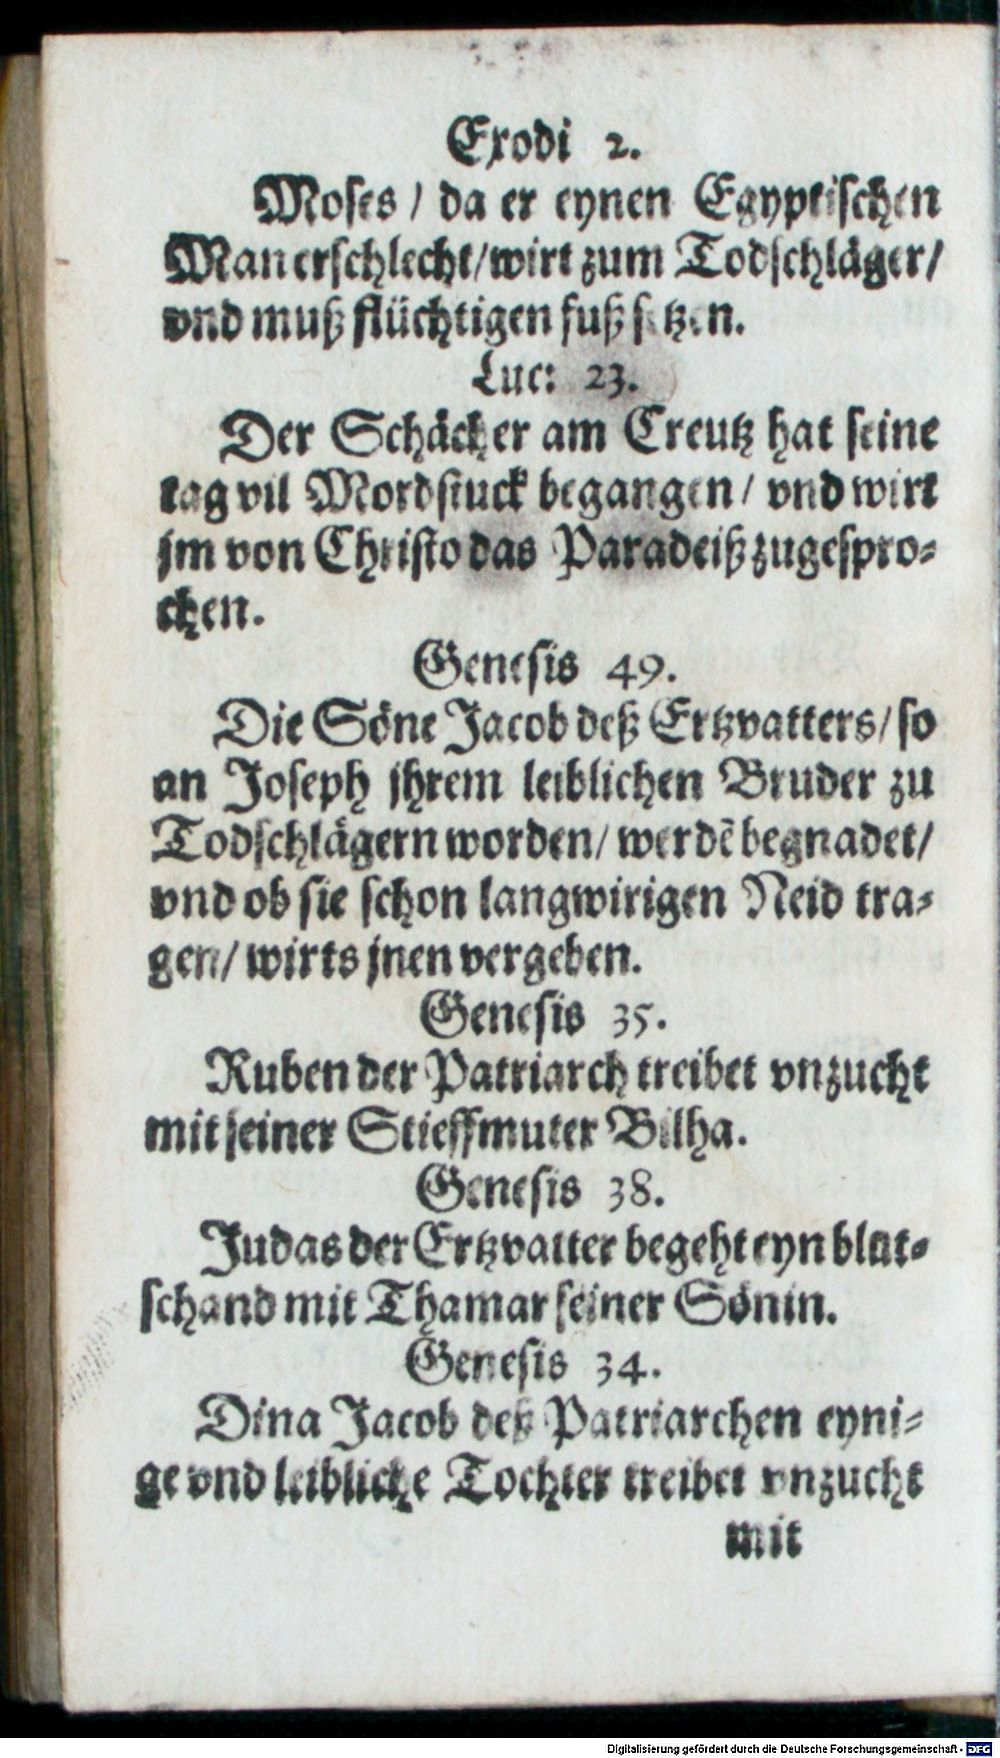 Exodi 2.
Moses / da er eynen Egyptischen
Man erschlecht / wirt zum Todschläger /
vnd muß flüchtigen fuß setzen.
Luc: 23.
Der Schächer am Creutz hat seine
tag vil Mordstuck begangen / vnd wirt
jm von Christo das Paradeiß zugespro-
chen.
Genesis 49.
Die Söne Jacob deß Ertzvatters / so
an Joseph jhrem leiblichen Bruder zu
Todschlägern worden / werdē begnadet /
vnd ob sie schon langwirigen Neid tra-
gen / wirts jnen vergeben.
Genesis 35.
Ruben der Patriarch treibet vnzucht
mit seiner Stieffmuter Bilha.
Genesis 38.
Judas der Ertzvatter begeht eyn blut-
schand mit Thamar seiner Sönin.
Genesis 34.
Dina Jacob deß Patriarchen eyni-
ge vnd leibliche Tochter treibet vnzucht
mit
Digitalisierung gefördert durch die Deutsche Forschungsgemeinschaft - DFG